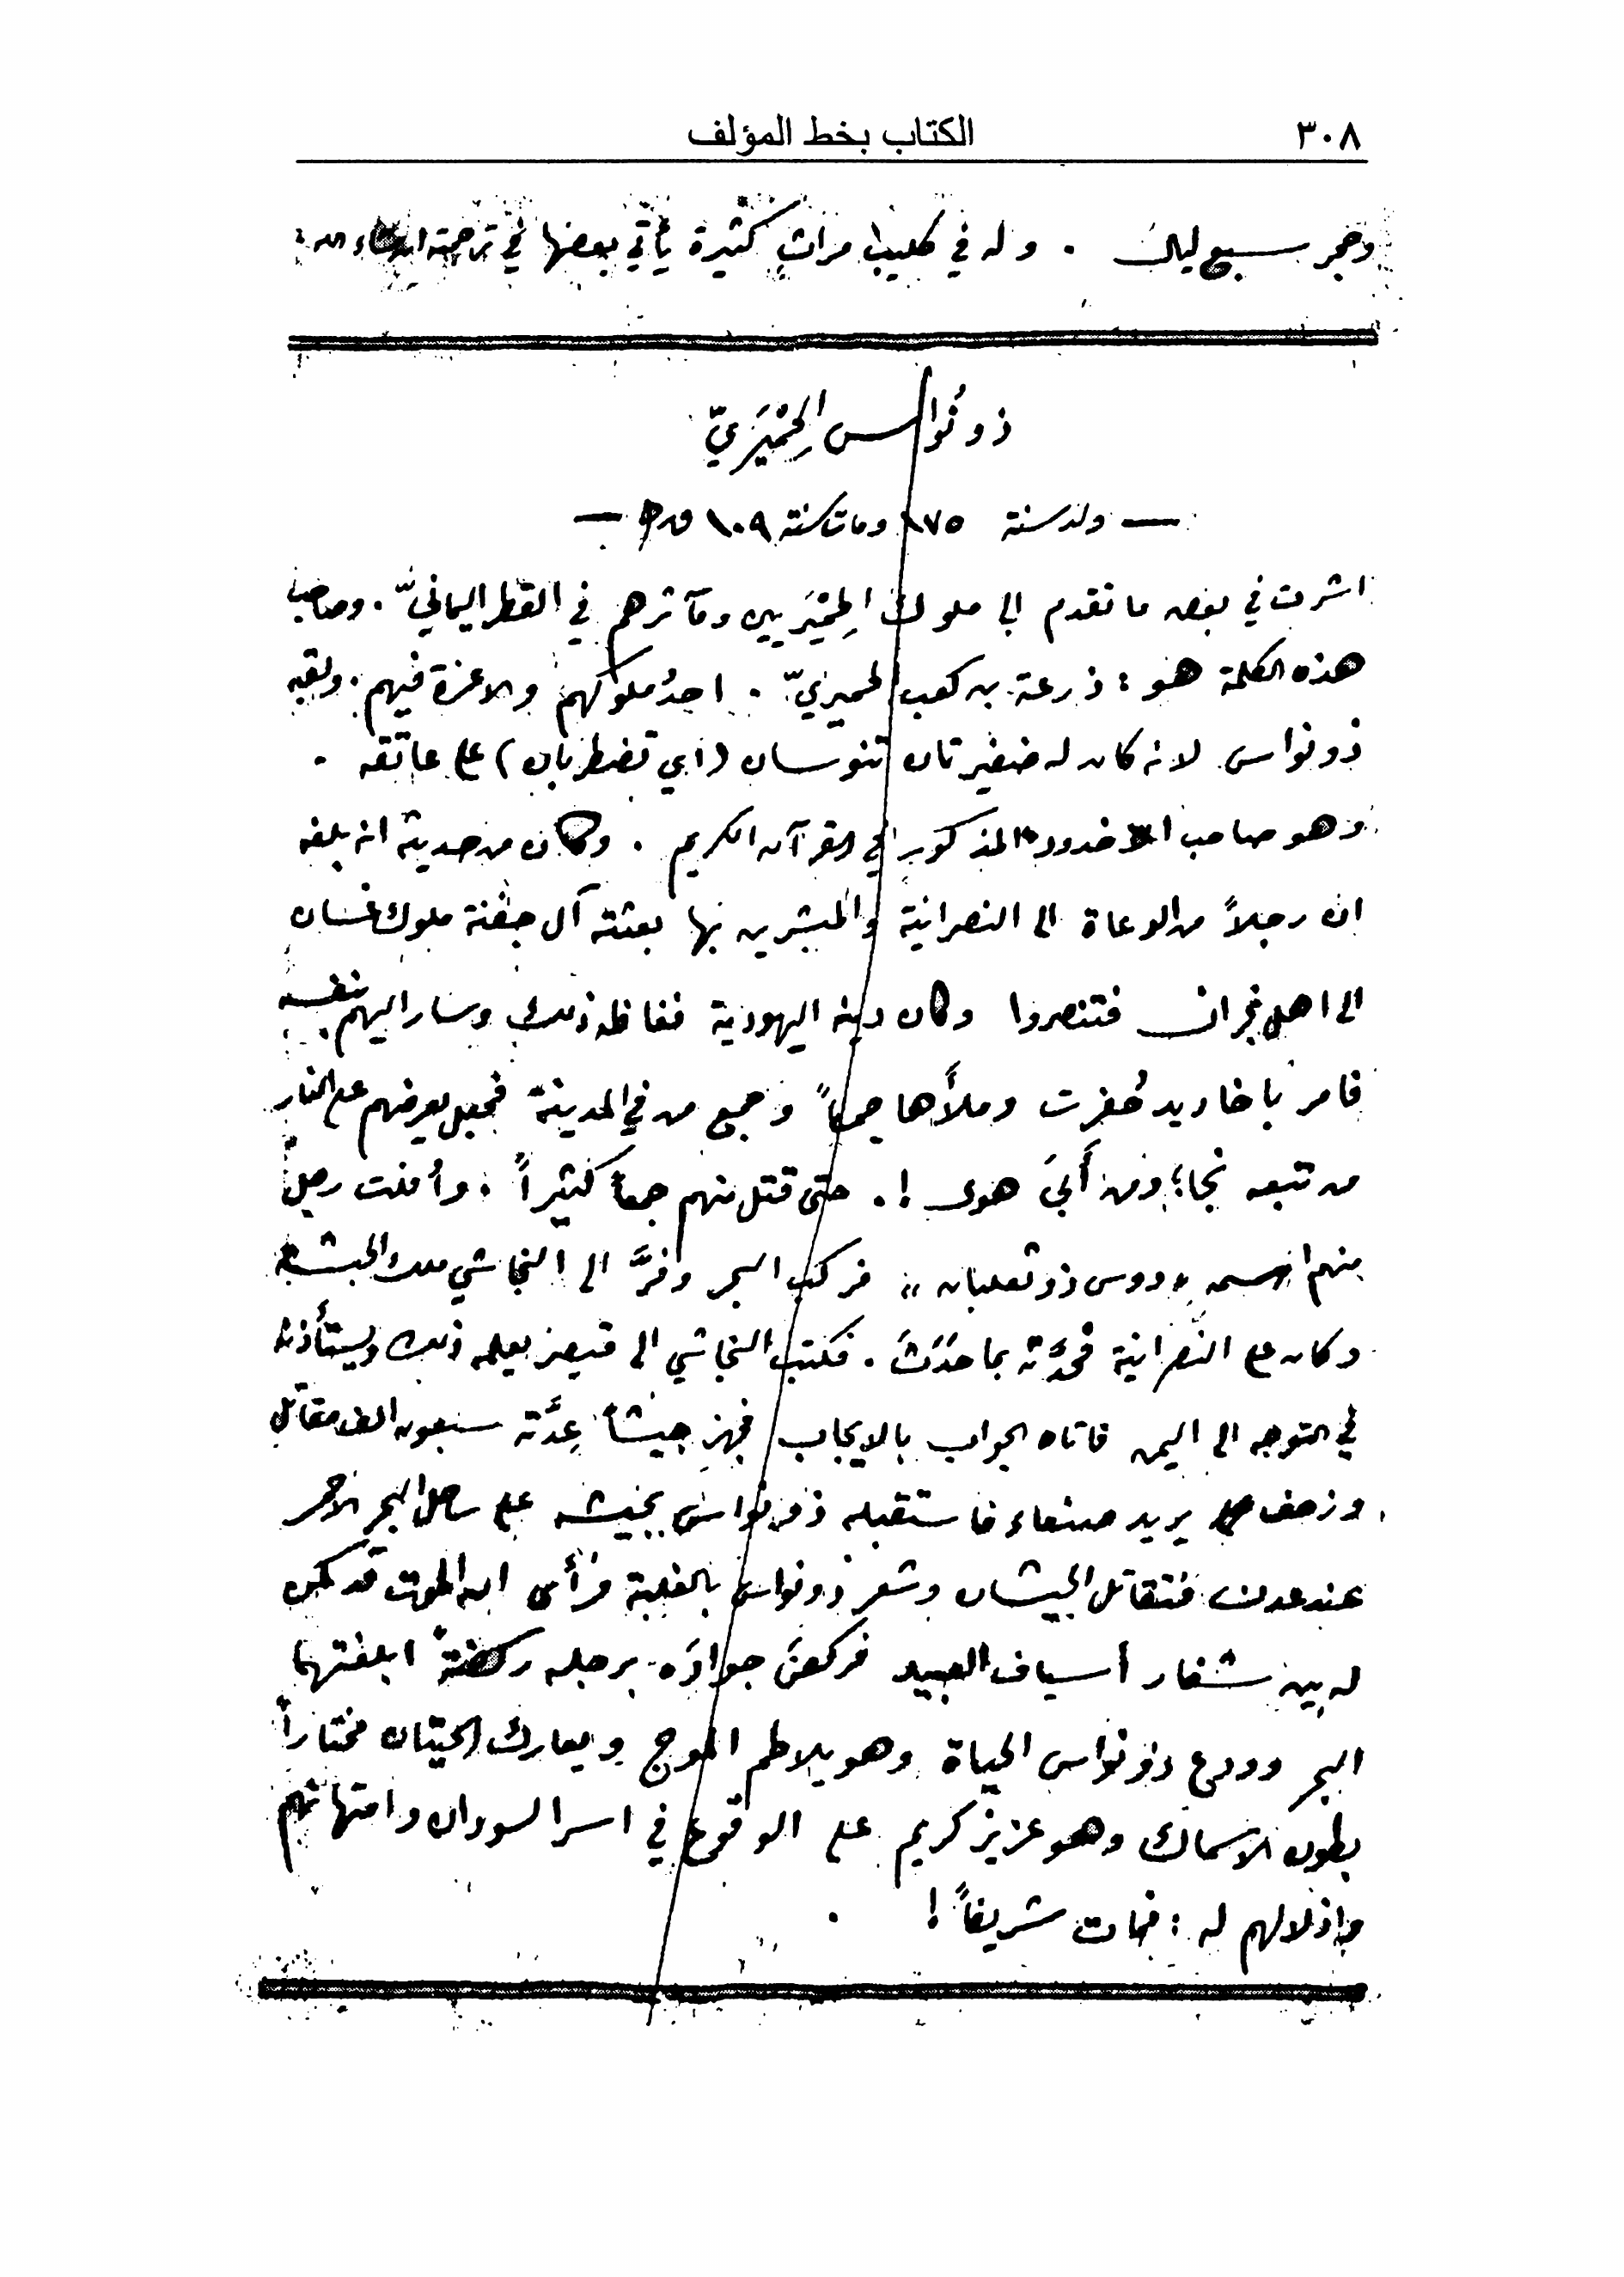 ٣٠٨ الكتاب بخط المؤلف
وحجر سبع ليال . وله في كليب مراثٍ كثيرة يأتي بعضها في ترجمة ان شاء الله
ذو نُواس الحِمْيَريّ
— ولد سنة ١٧٥ ومات سنة ١٠٩ ق ه —
اشرت في بعض ما تقدم الى ملوك الحِمْيَريين ومآثرهم في القطر اليمانيّ . وصاحب
هذه الكلمة هو : زرعة بن كعب الحميريّ . احدُ ملوكهم والاعزة فيهم . ولقبه
ذو نواس لانه كان له ضفيرتان تنوسان (أي تضطربان) على عاتقه .
وهو صاحب الاخدود المذكور في القرآن الكريم . وكان من حديثه انه بلغه
ان رجلاً من الدعاة الى النصرانية والمبشرين بها بعثته آل جفنة ملوك غسان
الى اهل نجران فتنصروا وكان دينه اليهودية فغاظه ذلك وسار اليهم بنفسه
فامر بأخاديد حُفرت وملأها جمراً وجمع من في المدينة فجعل يعرضهم على النار
من تبعه نجا؛ ومن أَبَى هوى !. حتى قتل منهم جمعاً كثيراً . وأفلت رجلٌ
منهم اسمه «دوس ذو ثعلبان» فركب البحر وفرَّ الى النجاشي ملك الحبشة
وكان على النصرانية فحدَّثه بما حَدَثَ . فكتب النجاشي الى قيصر يعلمه ذلك ويستأذنه
في التوجه الى اليمن فاتاه الجواب بالايجاب فجهز جيشاً عِدَّته سبعون الف مقاتل
وزحف يريد صنعاء فاستقبله ذو نواس بجيشه على ساحل البحر الاحمر
عند عدن فتقاتل الجيشان وشعر ذو نواس بالغلبة فرأى ان الموت قد كمن
له بين شفار أسياف العبيد فركضَ جوادَه برجله ركضةً ابلغتها
البحر وودع ذو نواس الحياة وهو يلاطم الموج ويعارك الحيتان مختاراً
بطون الاسماك وهو عزيز كريم على الوقوع في اسر السودان وامتهانهم
واذلالهم له : فمات شريفاً !